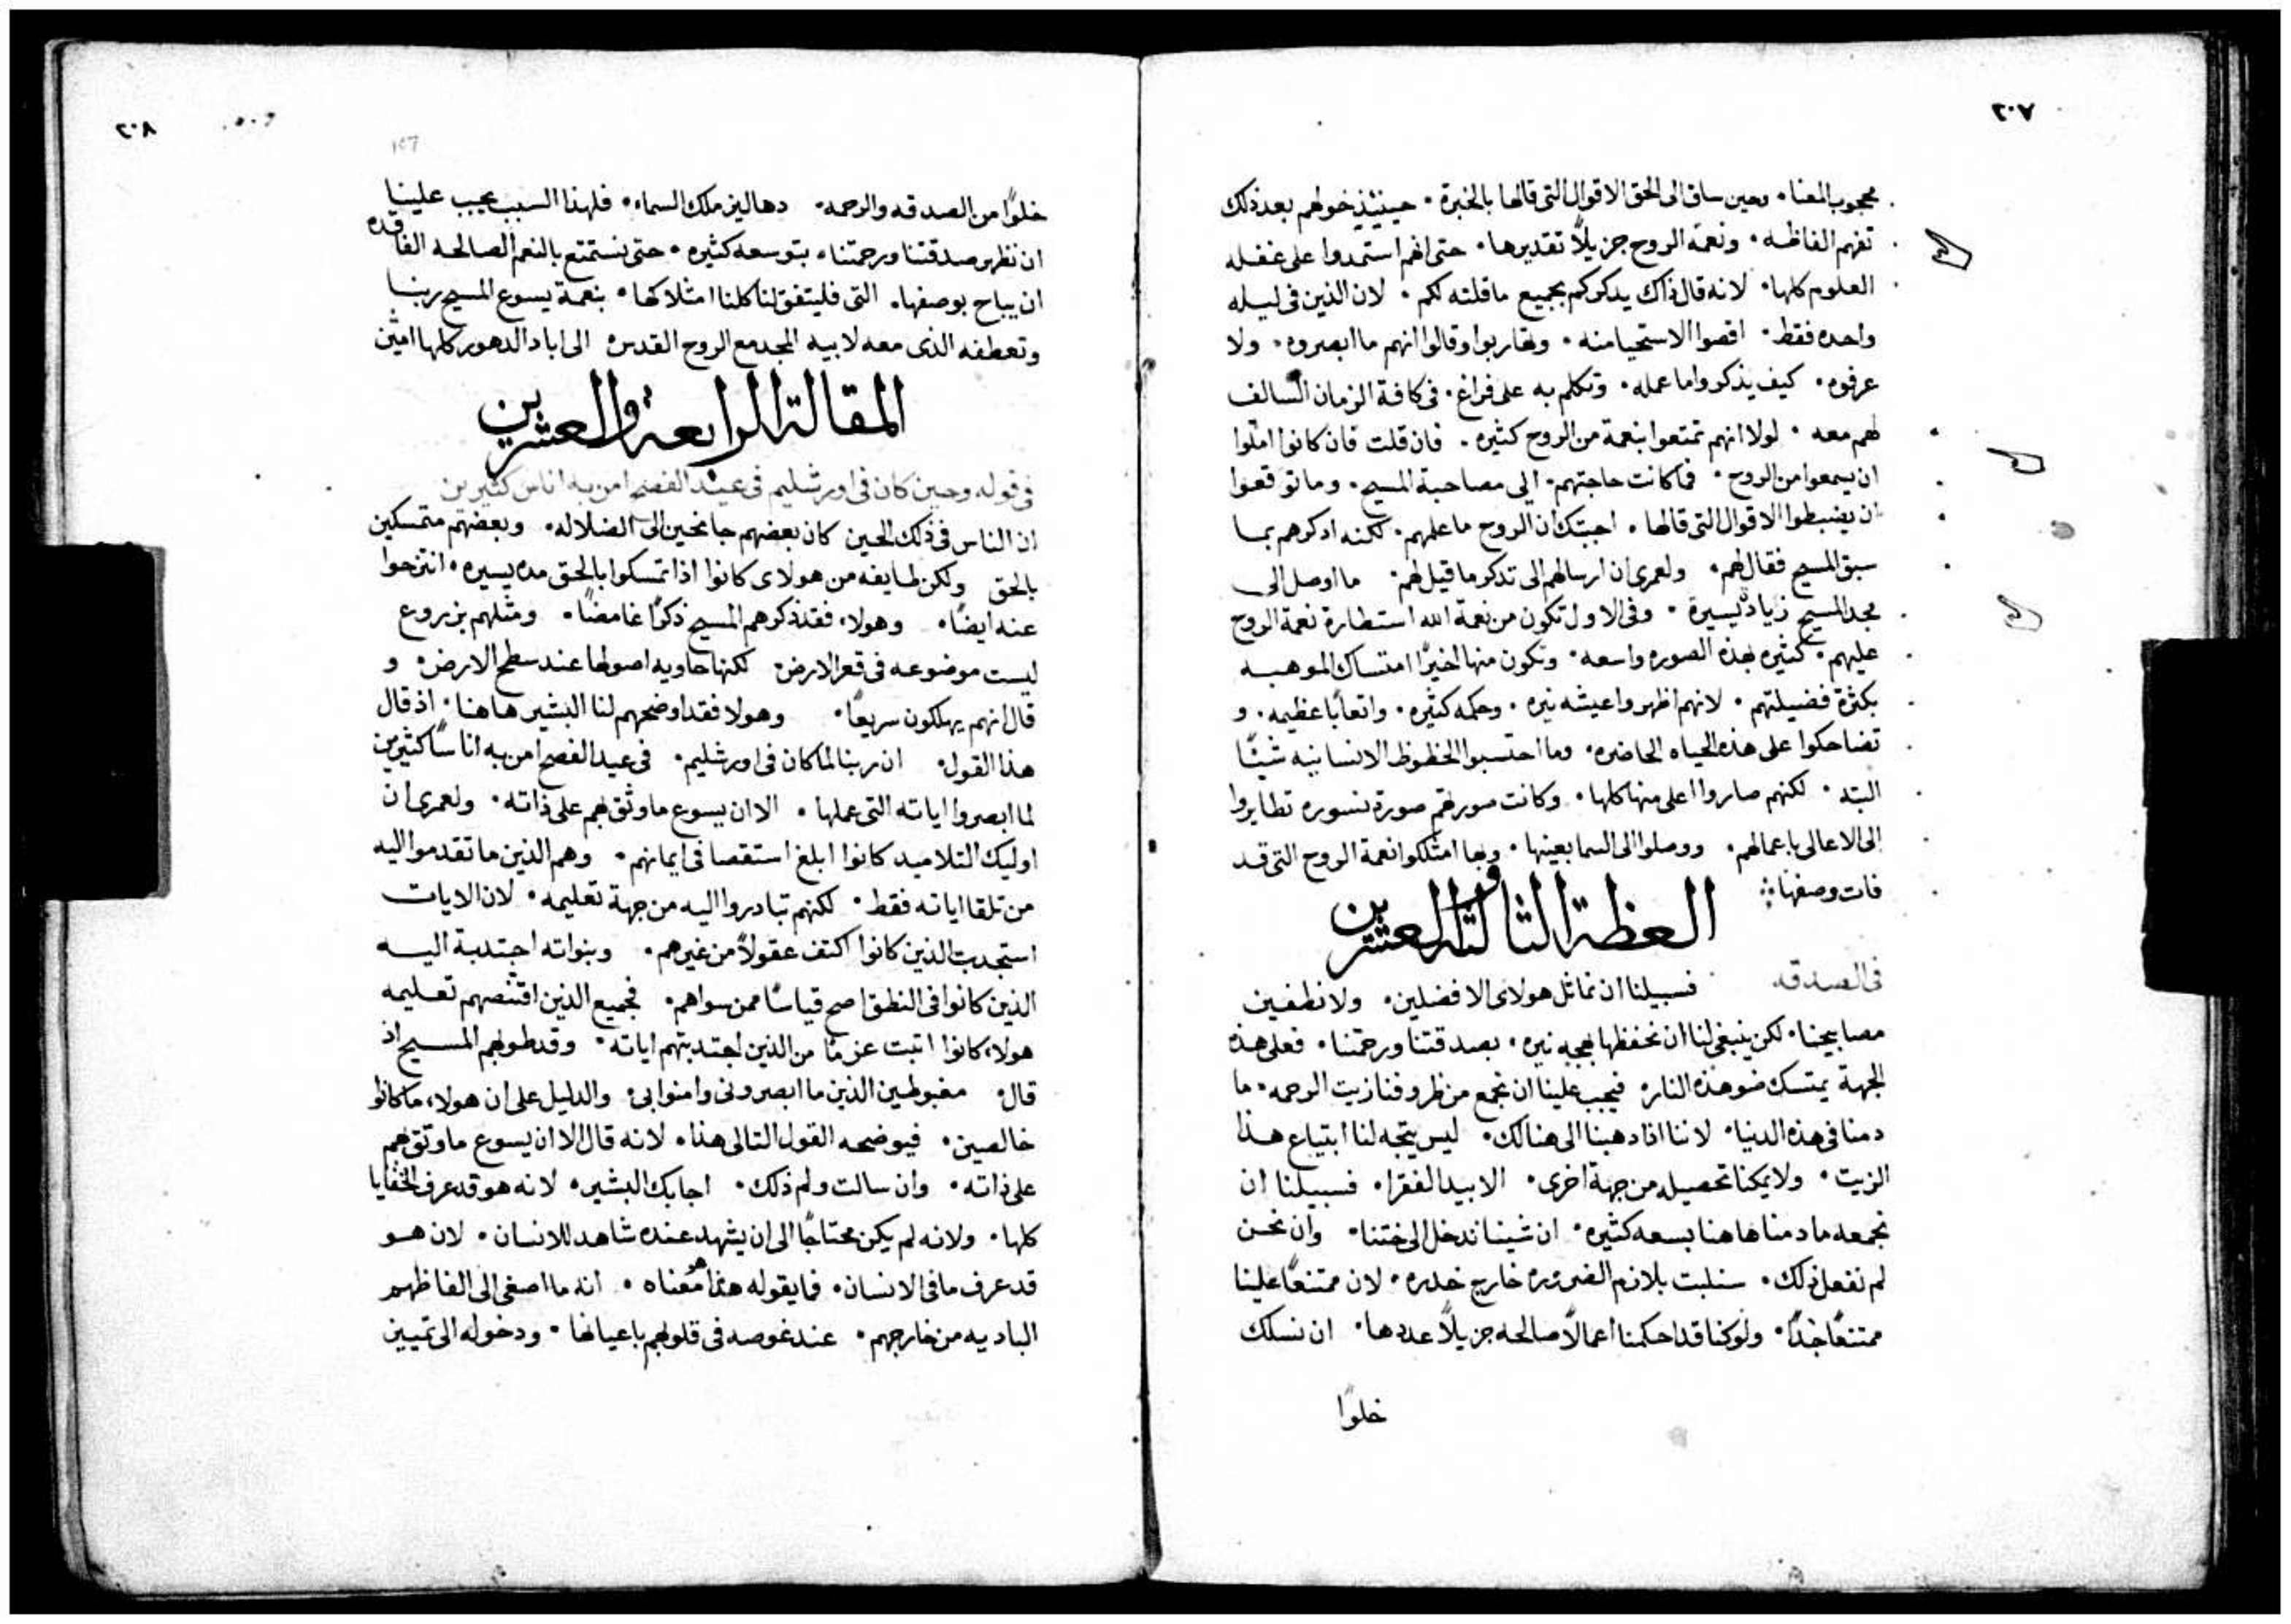 ٢٠٧
محجوب المعنا. وحين ساق الى الحق الاقوال التى قالها بالخبرة. حينئذ خولهم بعد ذلك
تفهم الفاظه. ونعمة الروح جزيلاً تقديرها. حتى انهم استمدوا على غفله
العلوم كلها. لانه قال ذاك يدكركم بجميع ما قلته لكم. لان الذين فى ليله
واحده فقط. اقصوا الاستحيا منه. وهاربوا وقالوا انهم ما ابصروه. ولا
عرفوه. كيف يذكروا ما عمله. وتكلم به على فراغ. فى كافة الزمان السالف
لهم معه. لولا انهم تمتعوا بنعمة من الروح كثيره. فان قلت فان كانوا املوا
ان يسمعوا من الروح. فما كانت حاجتهم. الى مصاحبة المسيح. وما توقعوا
ان يضبطوا الاقوال التى قالها. اجبتك ان الروح ما علمهم. لكنه ادكرهم بما
سبق المسيح فقال لهم. ولعمرى ان ارسالهم الى تدكر ما قيل لهم. ما اوصل الى
مجد المسيح زيادة يسيرة. وفى الاول تكون من نعمة الله استطارة نعمة الروح
عليهم. كثيره بهذه الصوره واسعه. وتكون منها اخيرًا امتساك الموهبه
بكثرة فضيلتهم. لانهم اظهروا عيشه نيره. وحكمه كثيره. واتعابًا عظيمه. و
تضاحكوا على هذه الحياه الحاضره. وما احتسبوا الحظوظ الانسانيه شيئًا
البته. لكنهم صاروا اعلى منها كلها. وكانت صورتهم صورة نسوره تطايروا
الى الاعالى باعمالهم. ووصلوا الى السما بعينها. وبها امتلكوا نعمة الروح التى قد
فات وصفها
العظة الثالثة والعشرين
فى الصدقه فسبيلنا ان نماثل هولاى الافضلين. ولا نطفين
مصابيحنا. لكن ينبغى لنا ان نحفظها بهجه نيره. بصدقتنا ورحمتنا. فعلى هذه
الجهة يمتسك ضو هذه النار. فيجب علينا ان نجمع من ظروفنا زيت الرحمه. ما
دمنا فى هذه الدنيا. لاننا اذا دهبنا الى هنالك. ليس يتجه لنا ابتياع هذا
الزيت. ولا يمكنا تحصيله من جهة اخرى. الا بيد الفقرا. فسبيلنا ان
نجمعه ما دمنا هاهنا بسعه كثيره. ان شينا ندخل الى ختننا. وان نحن
لم نفعل ذلك. سنلبت بلازم الضروره خارج خدره. لان ممتنعًا علينا
ممتنعًا جدًا. ولو كنا قد احكمنا اعمالاً صالحه جزيلاً عددها. ان نسلك
خلوًا
٢٠٨
خلوًا من الصدقه والرحمه. دهاليز ملك السماء. فلهذا السبب يجب علينا
ان نظهر صدقتنا ورحمتنا. بتوسعه كثيره. حتى نستمتع بالنعم الصالحه الفاقده
ان يباح بوصفها. التى فليتفق لنا كلنا امثلاكها. بنعمة يسوع المسيح ربنا
وتعطفه الذى معه لابيه المجد مع الروح القدس. الى اباد الدهور كلها امين
المقالة الرابعة والعشرين
فى قوله وحين كان فى اورشليم فى عيد الفصح امن به اناس كثيرين
ان الناس فى ذلك الحين كان بعضهم جانحين الى الضلاله. وبعضهم متمسكين
بالحق ولكن طايفه من هولاى كانوا اذا تمسكوا بالحق مده يسيره. انتزحوا
عنه ايضًا. وهولاء فقد ذكرهم المسيح ذكرًا غامضًا. ومثلهم بزروع
ليست موضوعه فى قعر الارض. لكنها حاويه اصولها عند سطح الارض. و
قال انهم يهلكون سريعًا. وهولا فقد اوضحهم لنا البشير هاهنا. اذ قال
هذا القول. ان ربنا لما كان فى اورشليم. فى عيد الفصح امن به اناسًا كثيرين
لما ابصروا اياته التى عملها. الا ان يسوع ما وثق بهم على ذاته. ولعمرى ان
اوليك التلاميد كانوا ابلغ استقصا فى ايمانهم. وهم الذين ما تقدموا اليه
من تلقا اياته فقط. لكنهم تبادروا اليه من جهة تعليمه. لان الايات
استجدبت الذين كانوا اكتف عقولاً من غيرهم. وبنواته اجتدبة اليه
الذين كانوا فى النطق اصح قياسًا ممن سواهم. فجميع الذين اقتنصهم تعليمه
هولاء كانوا اتبت عزمًا من الذين اجتدبتهم اياته. وقد طوبهم المسيح اذ
قال. مغبوطين الذين ما ابصرونى وامنوا بى. والدليل على ان هولاء ما كانوا
خالصين. فيوضحه القول التالى هذا. لانه قال الا ان يسوع ما وثق بهم
على ذاته. وان سالت ولم ذلك. اجابك البشير. لانه هو قد عرف الخفايا
كلها. ولانه لم يكن محتاجًا الى ان يشهد عنده شاهد للانسان. لان هو
قد عرف ما فى الانسان. فما يقوله هذا هو معناه. انه ما اصغى الى الفاظهم
الباديه من خارجهم. عند غوصه فى قلوبهم باعيانها. ودخوله الى تمييز